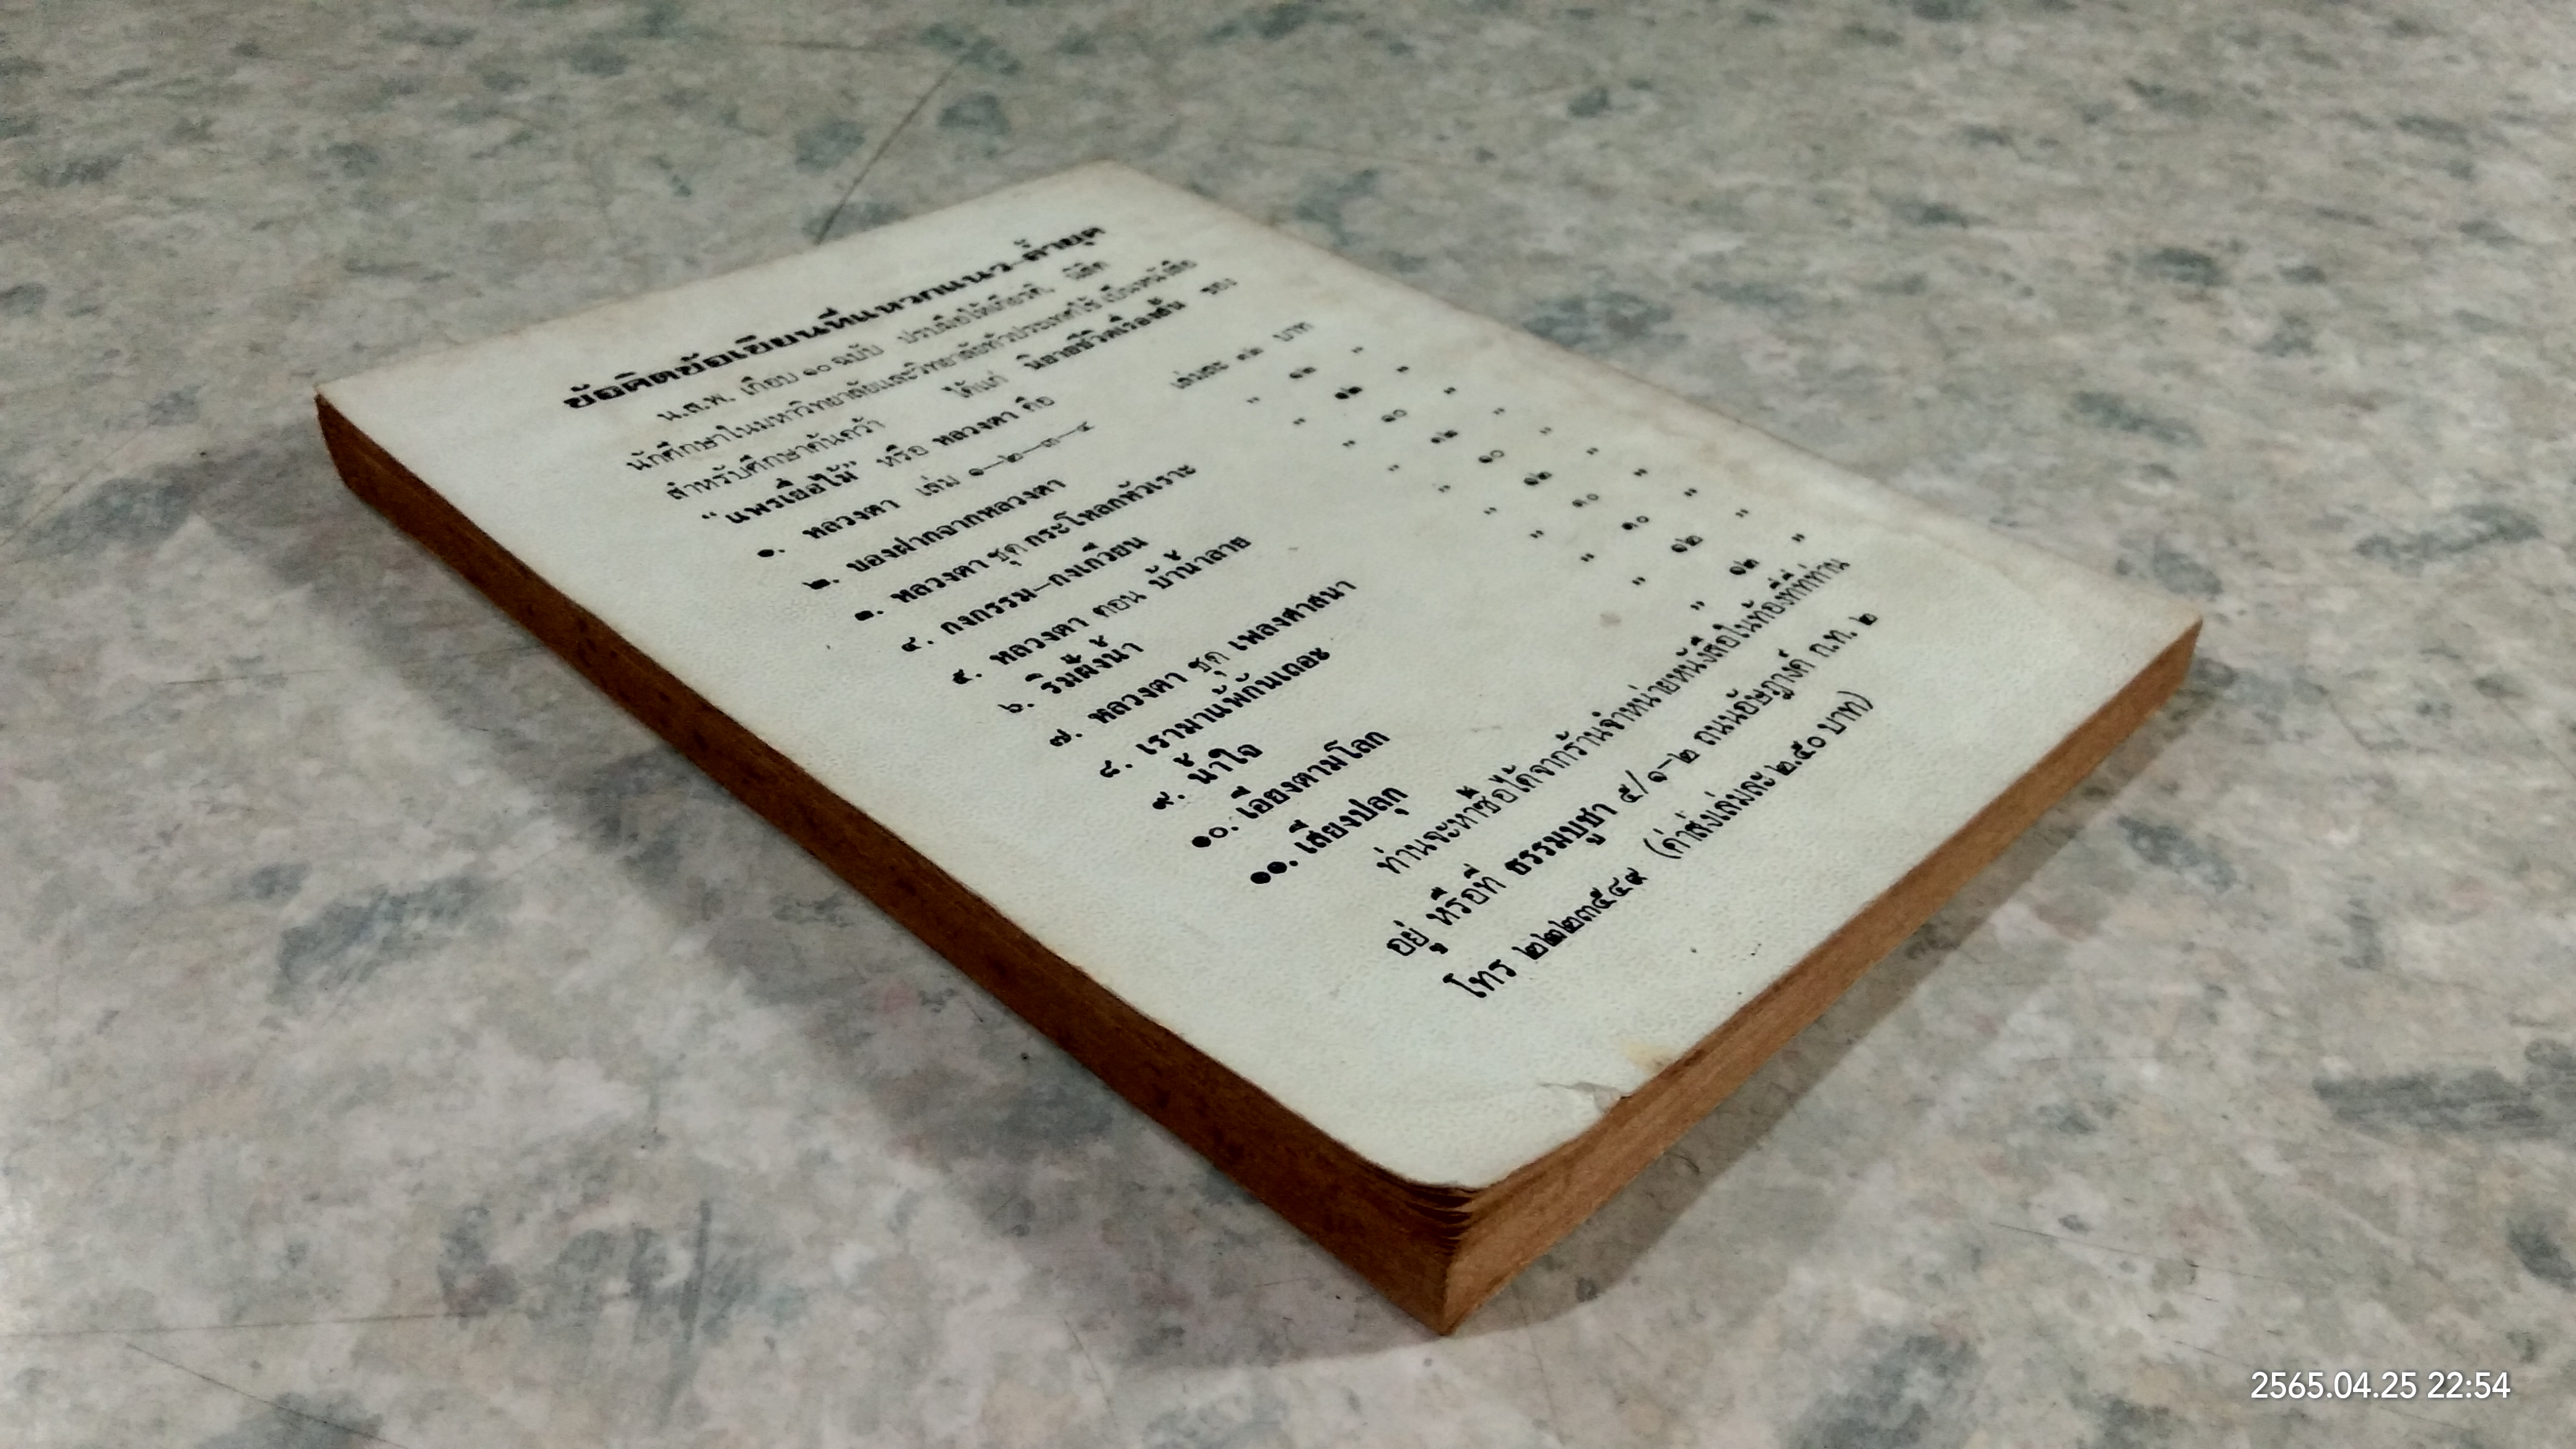 ข้อคิดข้อเขียนที่แหวกแนว-ล้ำยุค
น.ส.พ. เกือบ ๑๐ ฉบับ ปรบมือให้เกียรติ, นิสิต
นักศึกษาในมหาวิทยาลัยและวิทยาลัยทั่วประเทศใช้เป็นหนังสือ
สำหรับศึกษาค้นคว้า ได้แก่ นิยายชีวิตเรื่องสั้น ของ
“แพรเยื่อไม้” หรือ หลวงตา คือ
๑. หลวงตา เล่ม ๑—๒—๓—๔ เล่มละ ๑๒ บาท
๒. ของฝากจากหลวงตา " ๑๒ "
๓. หลวงตา ชุด กระโหลกหัวเราะ " ๑๒ "
๔. กงกรรม—กงเกวียน " ๑๐ "
๕. หลวงตา ตอน บ้าน้ำลาย " ๑๒ "
๖. ริมฝั่งน้ำ " ๑๐ "
๗. หลวงตา ชุด เพลงศาสนา " ๑๒ "
๘. เรามาแพ้กันเถอะ " ๑๐ "
๙. น้ำใจ " ๑๐ "
๑๐. เอียงตามโลก " ๑๒ "
๑๑. เสียงปลุก " ๑๒ "
ท่านจะหาซื้อได้จากร้านจำหน่ายหนังสือในท้องที่ที่ท่าน
อยู่ หรือที่ ธรรมบูชา ๕/๑-๒ ถนนอัษฎางค์ ก.ท. ๒
โทร ๒๒๒๓๕๔๙ (ค่าส่งเล่มละ ๒.๕๐ บาท)
2565.04.25 22:54